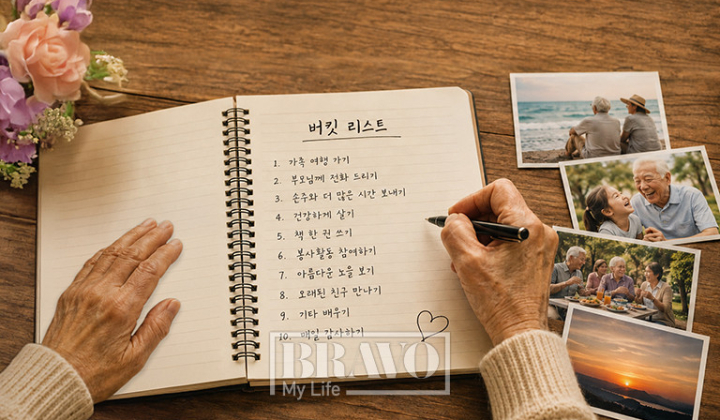 버킷 리스트
1. 가족 여행 가기
2. 부모님께 전화 드리기
3. 손주와 더 많은 시간 보내기
4. 건강하게 살기
5. 책 한 권 쓰기
6. 봉사활동 참여하기
7. 아름다운 노을 보기
8. 오래된 친구 만나기
9. 기타 배우기
10. 매일 감사하기
BRAVO
My Life